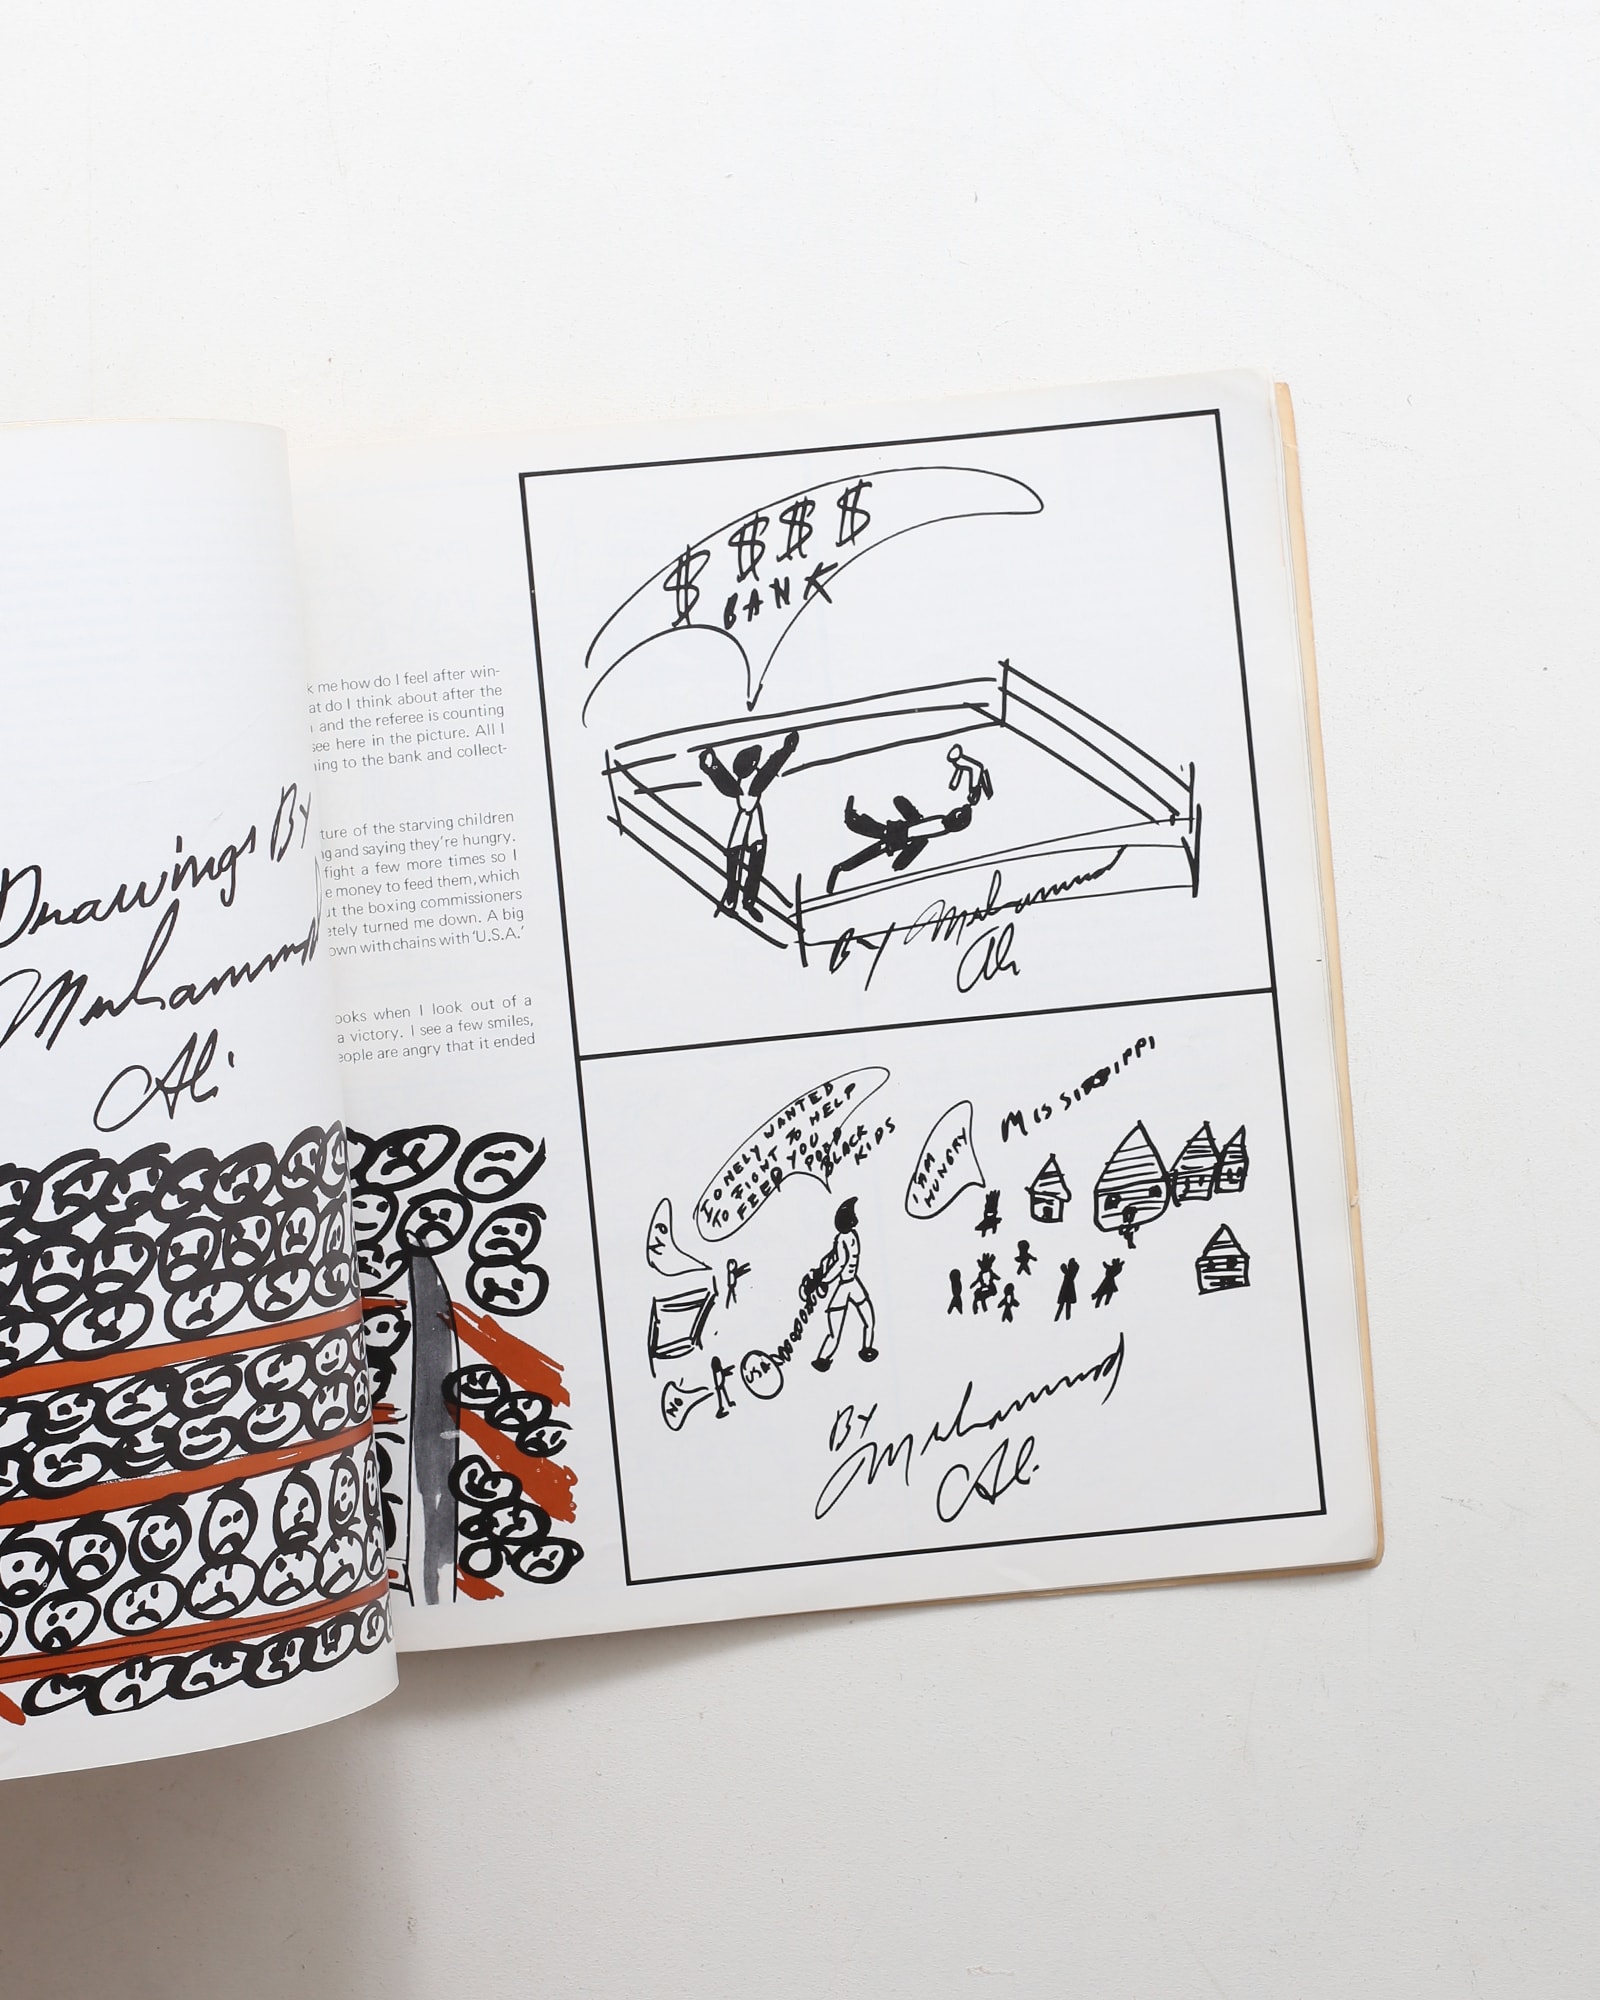 Drawings By
Muhammad
Ali
k me how do I feel after win-
at do I think about after the
and the referee is counting
see here in the picture. All I
ning to the bank and collect-
ture of the starving children
g and saying they're hungry.
fight a few more times so I
e money to feed them, which
ut the boxing commissioners
etely turned me down. A big
own with chains with 'U.S.A.'
ooks when I look out of a
a victory. I see a few smiles,
eople are angry that it ended
$ $ $ $
BANK
BY Muhammad
Ali
I ONELY WANTED
TO FIGHT TO HELP
TO FEED YOU
POOR
BLACK
KIDS
NO
NO
USA
I AM
HUNGRY
MISSISSIPPI
BY
Muhammad
Ali